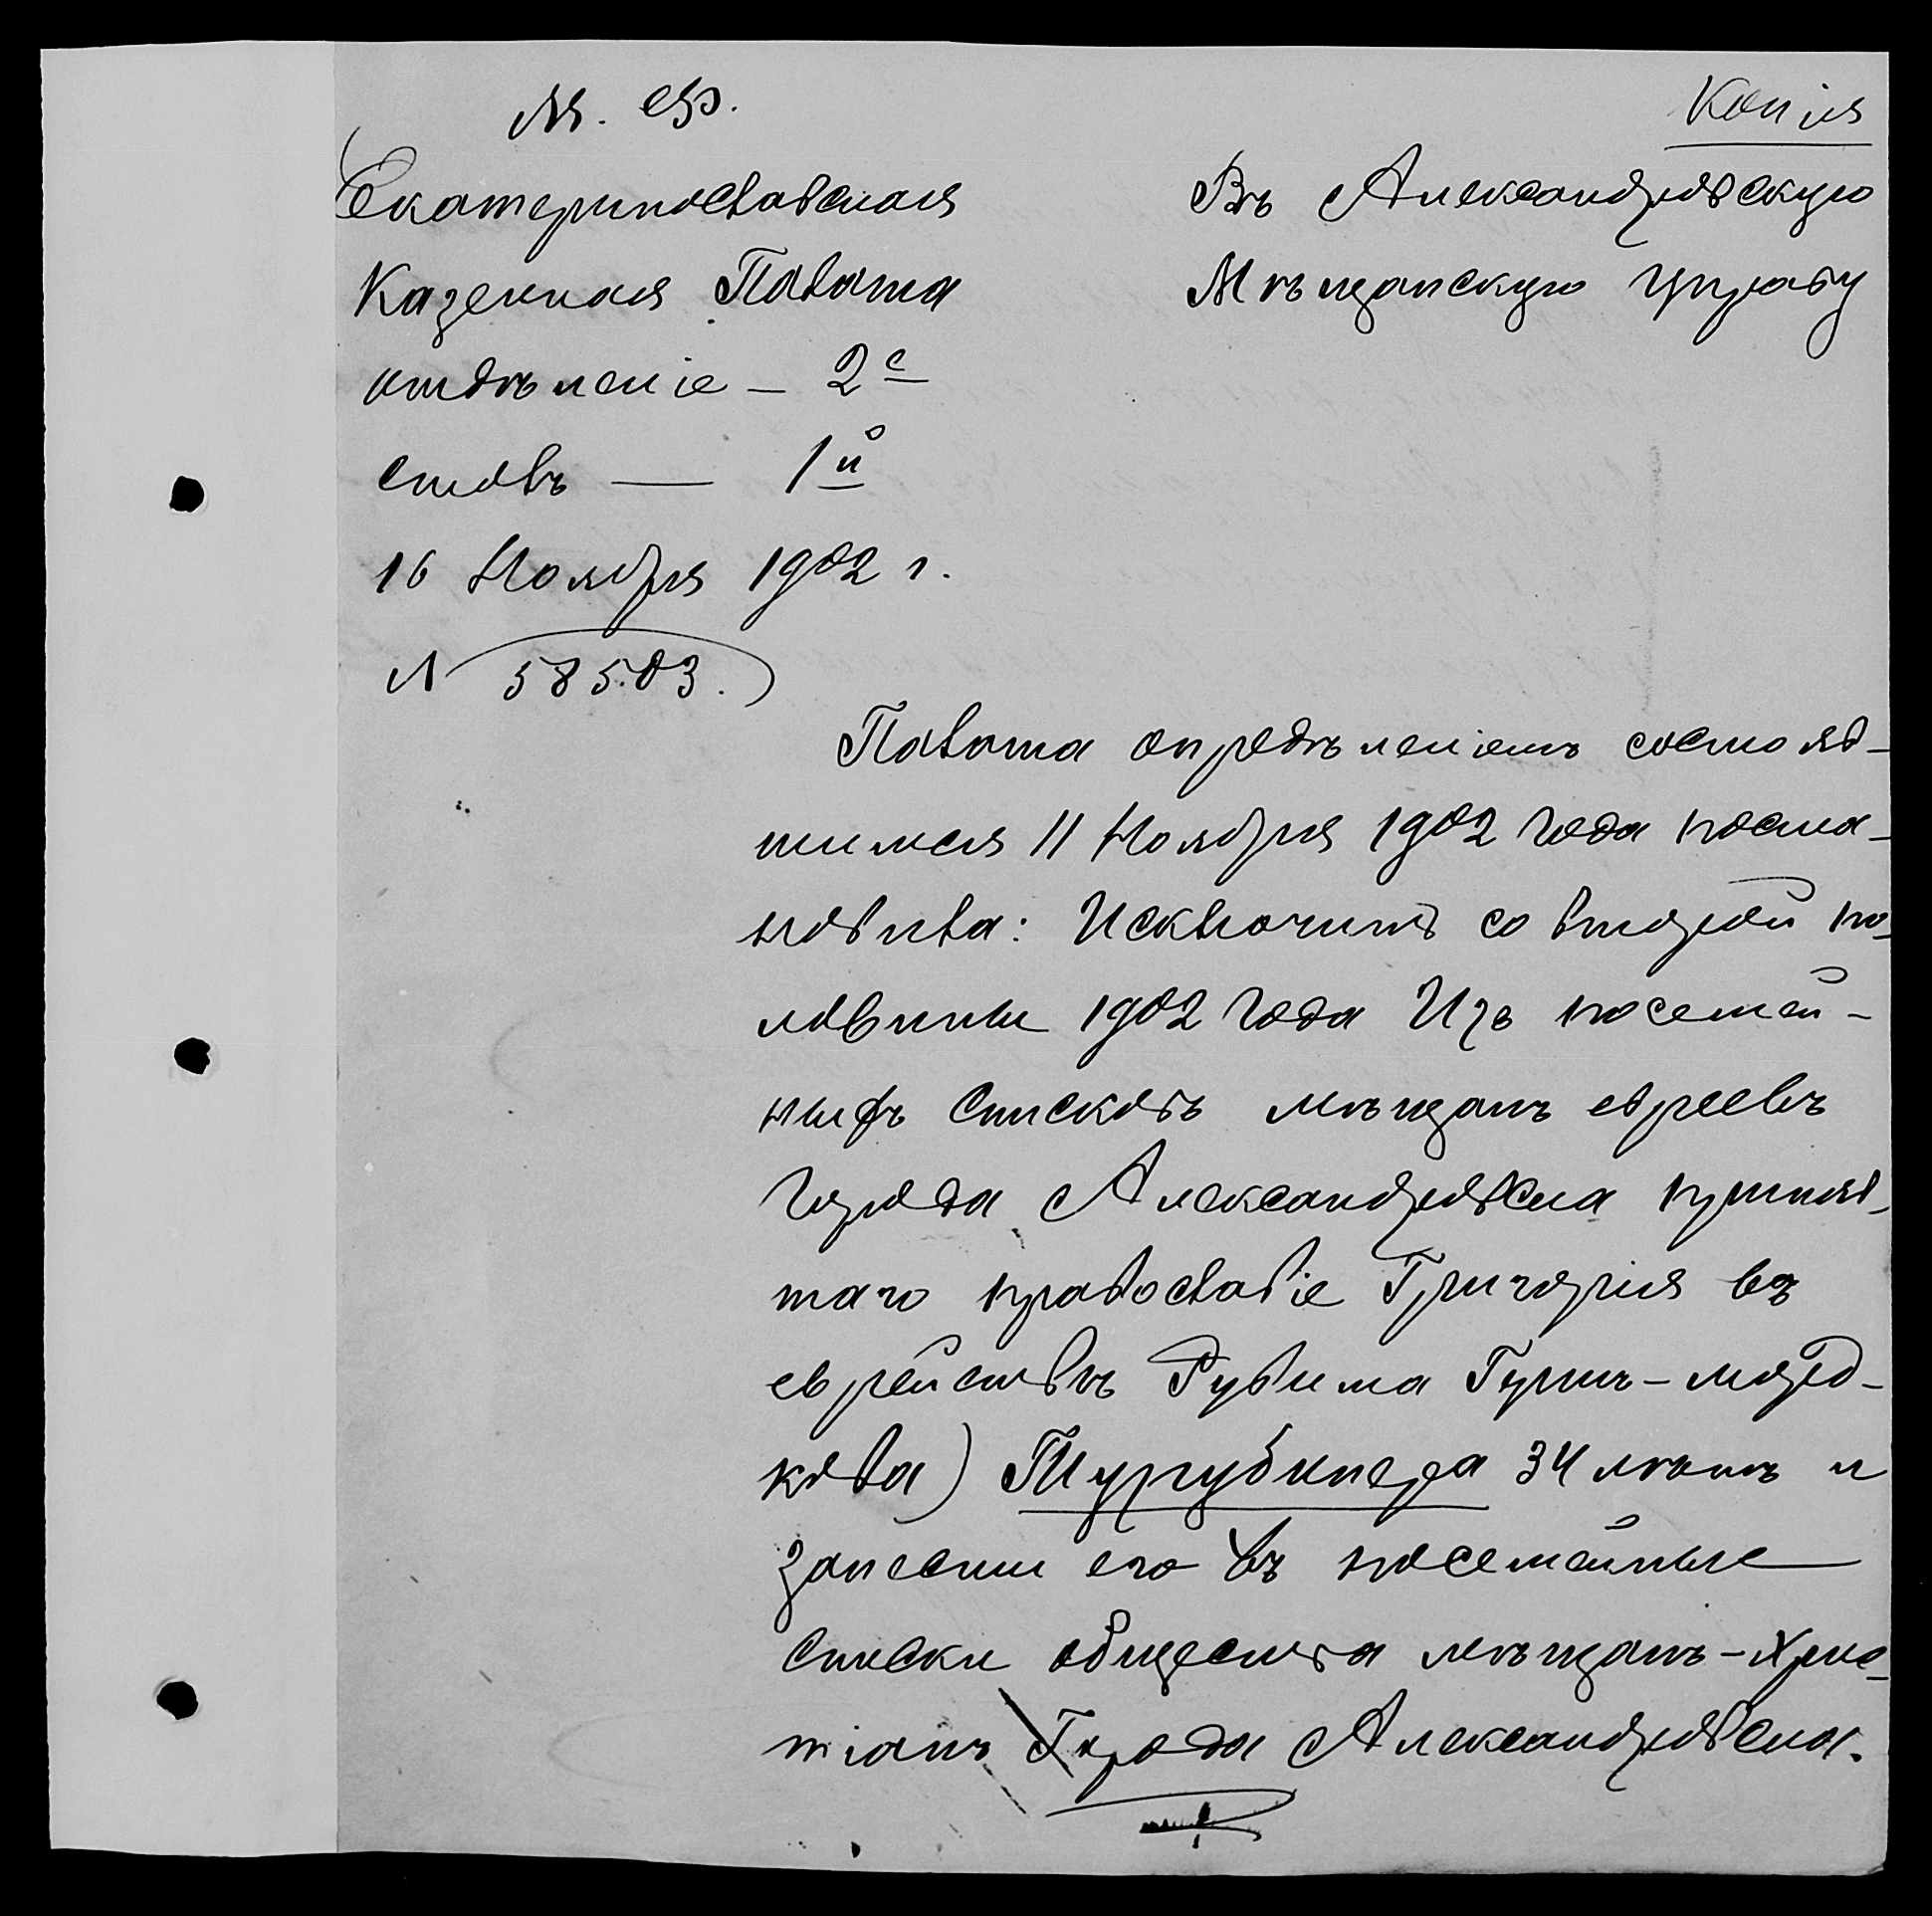 М. Ф.
Копія
Екатеринославская
Казенная Палата
отдѣленіе — 2е
столъ — 1й
16 Ноября 1902 г.
№ 58503.
Въ Александровскую
Мѣщанскую Управу
Палата опредѣленіемъ состояв-
шимся 11 Ноября 1902 года поста-
новила: Исключить со второй по-
ловины 1902 года Изъ посемей-
ныхъ списковъ мѣщанъ евреевъ
города Александровска приняв-
таго православіе Григорія въ
еврействѣ Рувима Гершъ-
кова) 34 лѣтъ и
занести его въ посемейные
списки общества мѣщанъ-Хрис-
тіанъ Города Александровска.